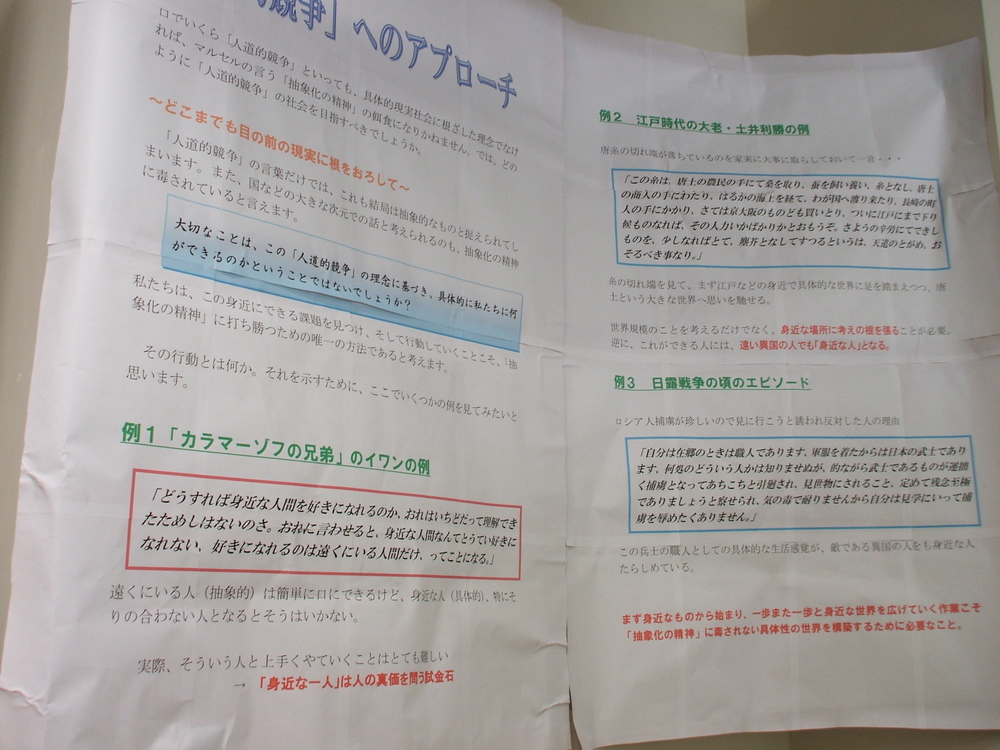 競争」へのアプローチ
口でいくら「人道的競争」といっても、具体的現実社会に根ざした理念でなけ
れば、マルセルの言う「抽象化の精神」の餌食になりかねません。では、どの
ように「人道的競争」の社会を目指すべきでしょうか。
～どこまでも目の前の現実に根をおろして～
「人道的競争」の言葉だけでは、これも結局は抽象的なものと捉えられてし
まいます。また、国などの大きな次元での話と考えられるのも、抽象化の精神
に毒されていると言えます。
大切なことは、この「人道的競争」の理念に基づき、具体的に私たちに何
ができるのかということではないでしょうか？
私たちは、この身近にできる課題を見つけ、そして行動していくことこそ、「抽
象化の精神」に打ち勝つための唯一の方法であると考えます。
その行動とは何か。それを示すために、ここでいくつかの例を見てみたいと
思います。
例１「カラマーゾフの兄弟」のイワンの例
「どうすれば身近な人間を好きになれるのか、おれはいちどだって理解でき
たためしはないのさ。おれに言わせると、身近な人間なんてとうてい好きに
なれない、好きになれるのは遠くにいる人間だけ、ってことになる。」
遠くにいる人（抽象的）は簡単に口にできるけど、身近な人（具体的）、特にそ
りの合わない人となるとそうはいかない。
実際、そういう人と上手くやていくことはとても難しい
→ 「身近な一人」は人の真価を問う試金石
例２ 江戸時代の大老・土井利勝の例
唐糸の切れ端が落ちているのを家来に大事に取らしておいて一言・・・
「この糸は、唐土の農民の手にて桑を取り、蚕を飼い養い、糸となし、唐土
の商人の手にわたり、はるかの海上を経て、わが国へ渡り来たり、長崎の町
人の手にかかり、さては京大阪のものども買いとり、ついに江戸にまで下り
候ものなれば、その人力いかばかりかとおもうぞ。さようの辛労にてできし
ものを、少しなればとて、塵芥となしてすつるというは、天道のとがめ、お
そるべき事なり。」
糸の切れ端を見て、まず江戸などの身近で具体的な世界に足を踏まえつつ、唐
土という大きな世界へ思いを馳せる。
世界規模のことを考えるだけでなく、身近な場所に考えの根を張ることが必要。
逆に、これができる人には、遠い異国の人でも「身近な人」となる。
例３ 日露戦争の頃のエピソード
ロシア人捕虜が珍しいので見に行こうと誘われ反対した人の理由
「自分は在郷のときは職人であります、軍服を着たからは日本の武士であり
ます、何処のどういう人かは知りませぬが、的ながら武士であるものが運拙
く捕虜となってあちこちと引廻され、見世物にされること、定めて残念至極
でありましょうと察せられ、気の毒で耐りませんから自分は見学にいって捕
虜を辱めたくありません。」
この兵士の職人としての具体的な生活感覚が、敵である異国の人をも身近な人
たらしめている。
まず身近なものから始まり、一歩また一歩と身近な世界を広げていく作業こそ
「抽象化の精神」に毒されない具体性の世界を構築するために必要なこと。